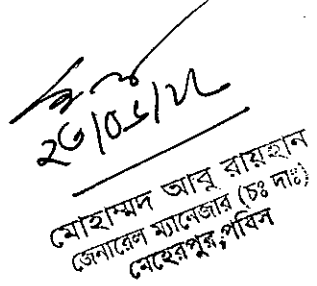 ২৬/০১/২২
মোহাম্মদ আবু রায়হান
জেনারেল ম্যানেজার (চঃ দাঃ)
মেহেরপুর পবিস